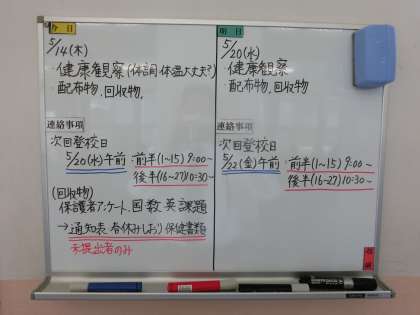 今日
5/14(木)
健康観察(体調・体温大丈夫?)
配布物,回収物,
連絡事項
次回登校日
5/20(水)午前 前半(1~15)9:00~
後半(16~27)10:30~
(回収物)
保護者アンケート、国数英課題
→通知表 春休みしおり 保健書類
未提出者のみ
明日
5/20(水)
健康観察
配布物,回収物
連絡事項
次回登校日
5/22(金)午前 前半(1~15)9:00~
後半(16~27)10:30~